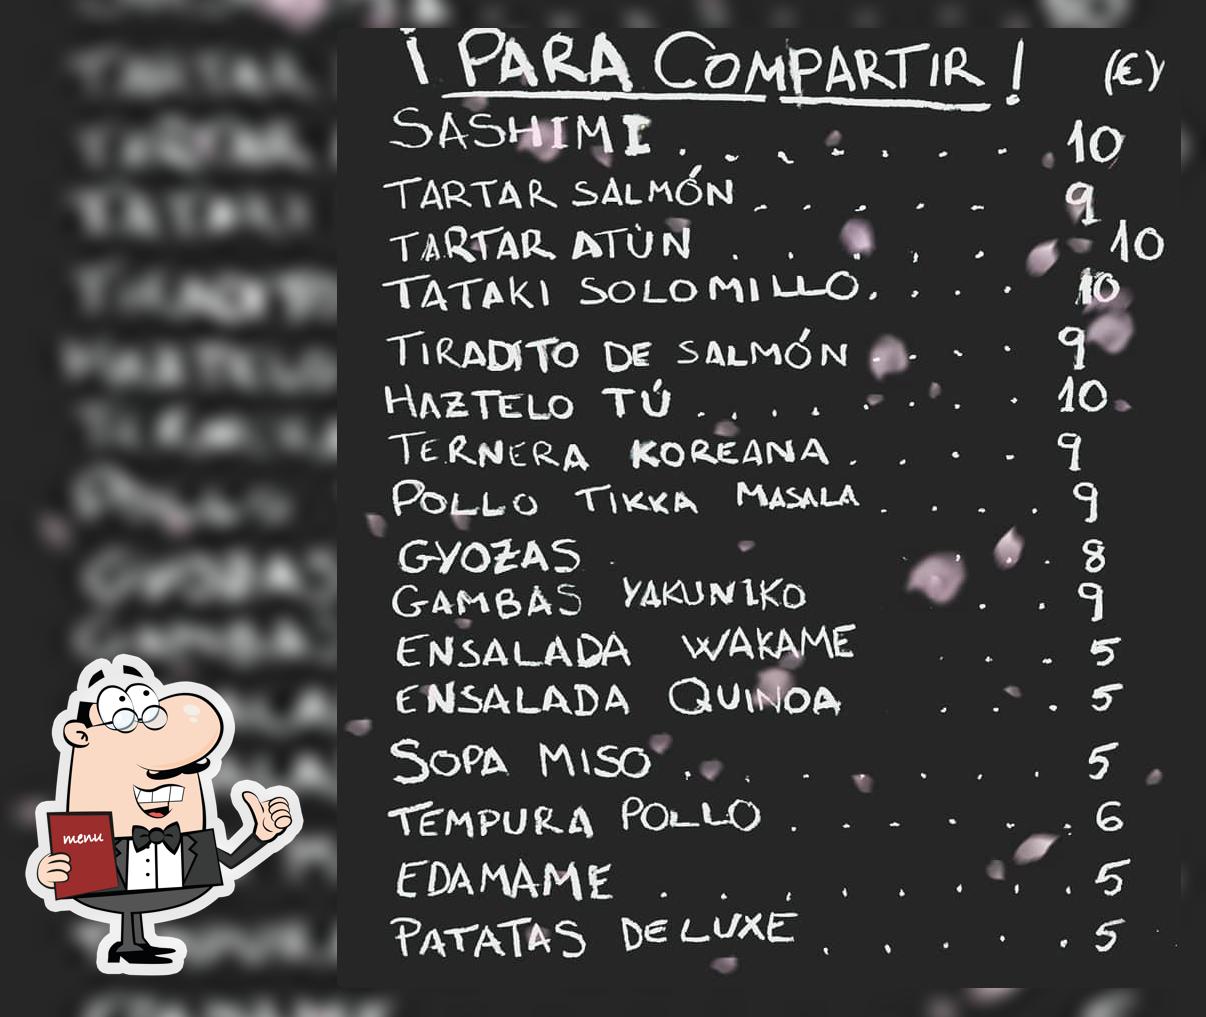 ¡PARA COMPARTIR! (€)
SASHIMI . . . . . . . 10
TARTAR SALMÓN . . . . . 9
TARTAR ATÚN . . . . . 10
TATAKI SOLOMILLO . . . . 10
TIRADITO DE SALMÓN . . . . 9
HAZTELO TÚ . . . . . . . 10
TERNERA KOREANA . . . . 9
POLLO TIKKA MASALA . . . . 9
GYOZAS . . . . 8
GAMBAS YAKUNIKO . . 9
ENSALADA WAKAME . . . 5
ENSALADA QUINOA . . . 5
SOPA MISO . . . . . . . 5
TEMPURA POLLO . . . . . . . 6
EDAMAME . . . . . . . . 5
PATATAS DELUXE . . . . . 5
menu